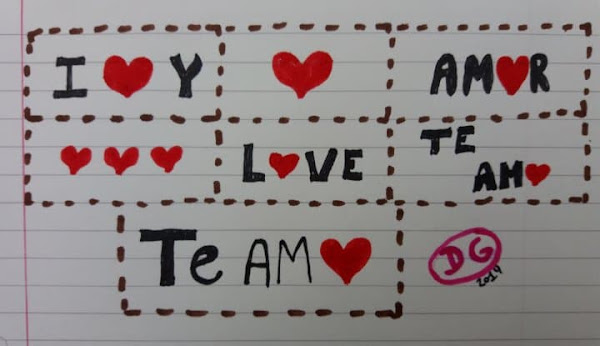 I ❤ Y
❤
AM❤R
❤ ❤ ❤
L❤VE
TE
AM❤
Te AM❤
DG
2014